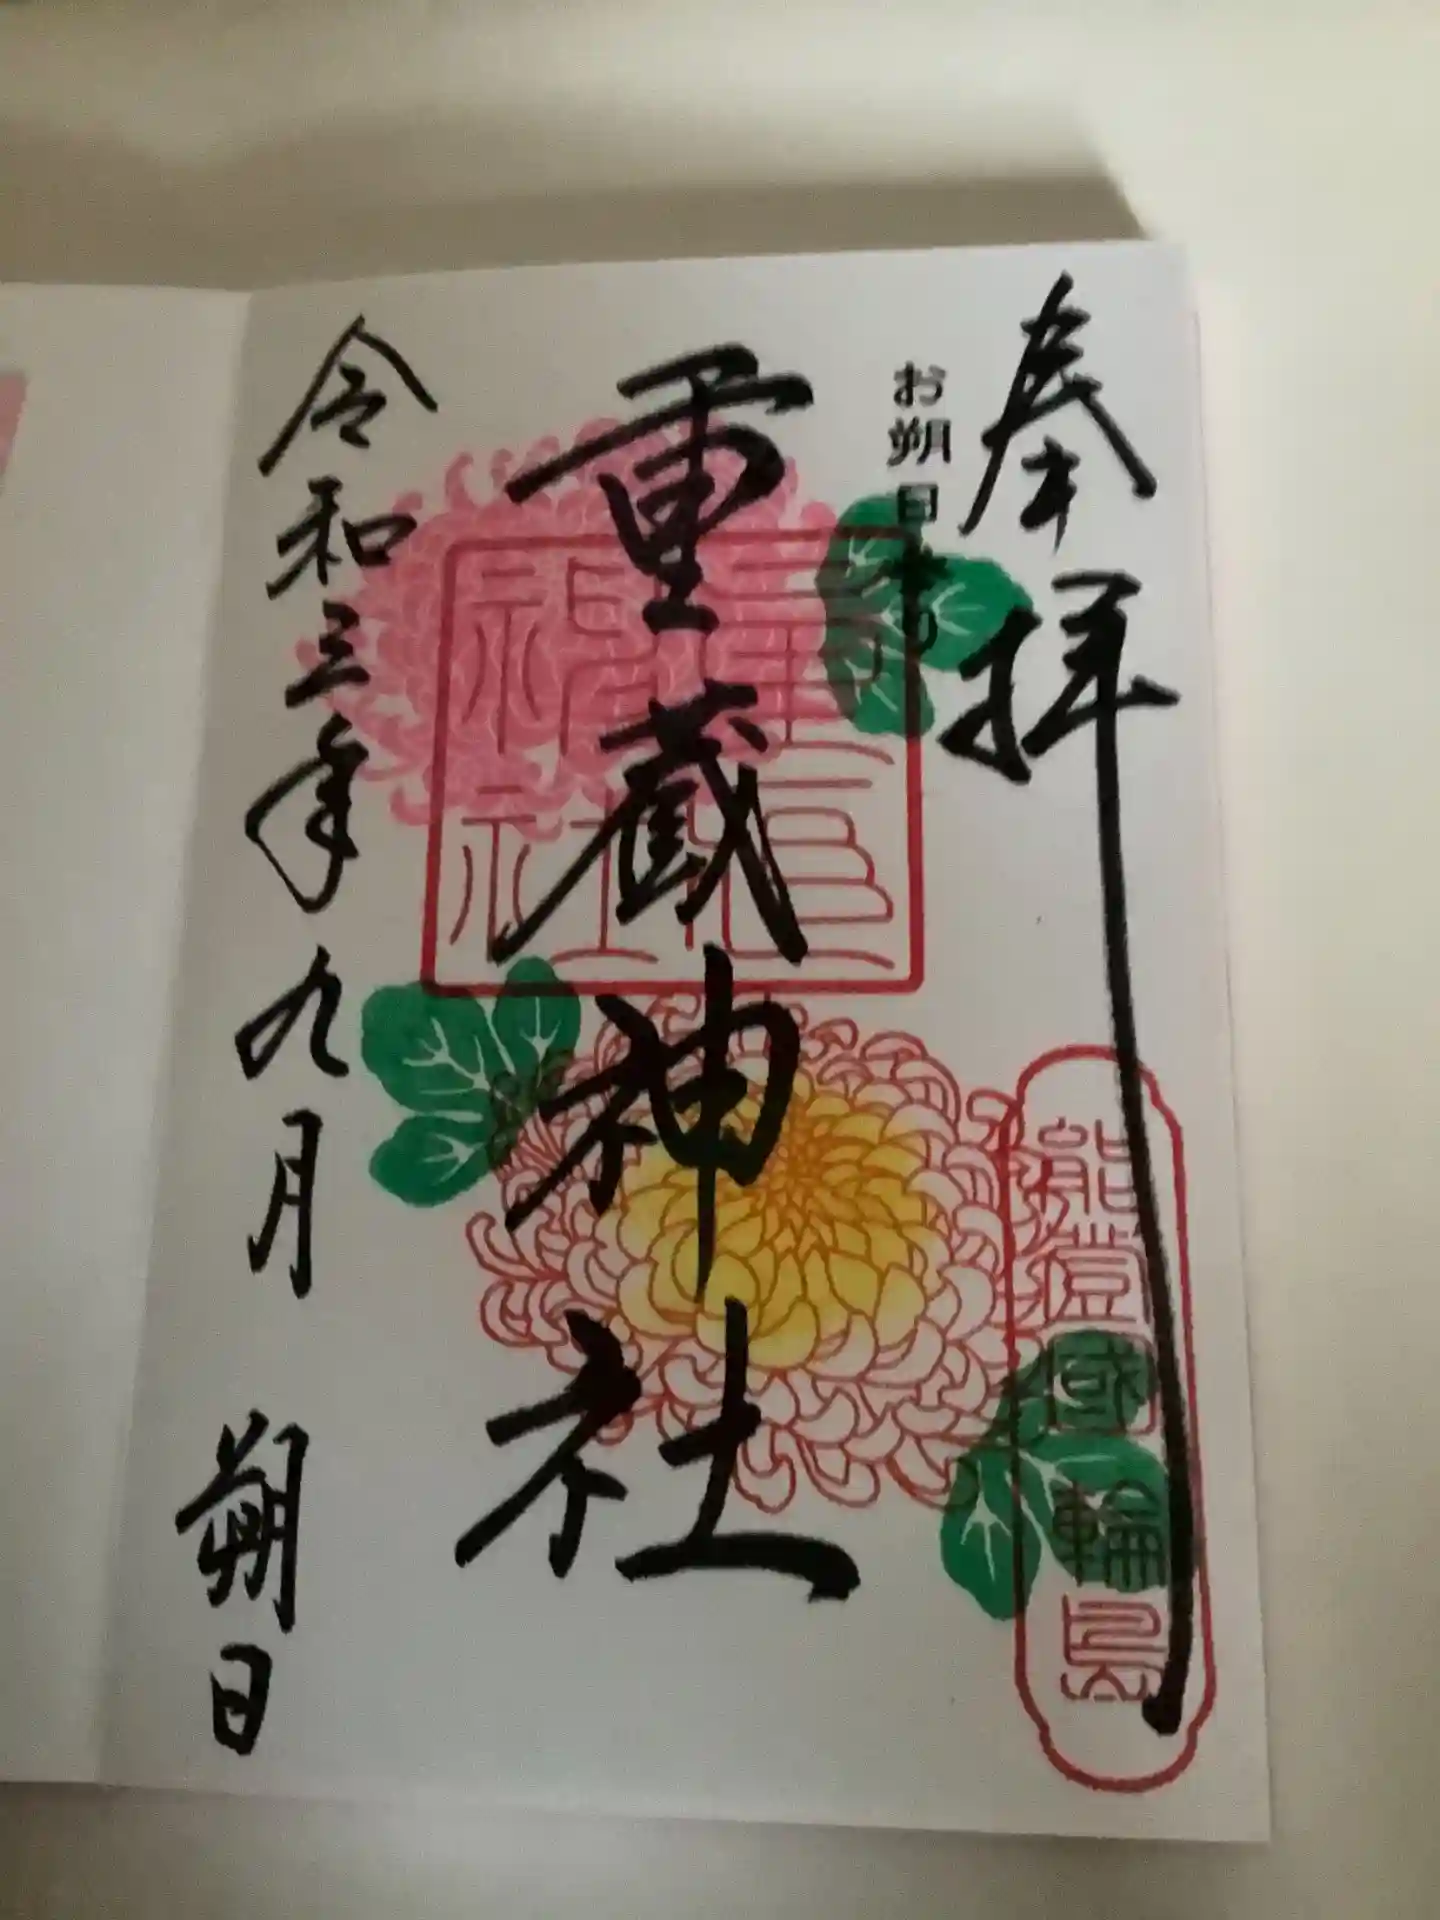 奉拝
お朔日参り
重蔵神社
重蔵神社
能登國輪島
令和三年九月朔日